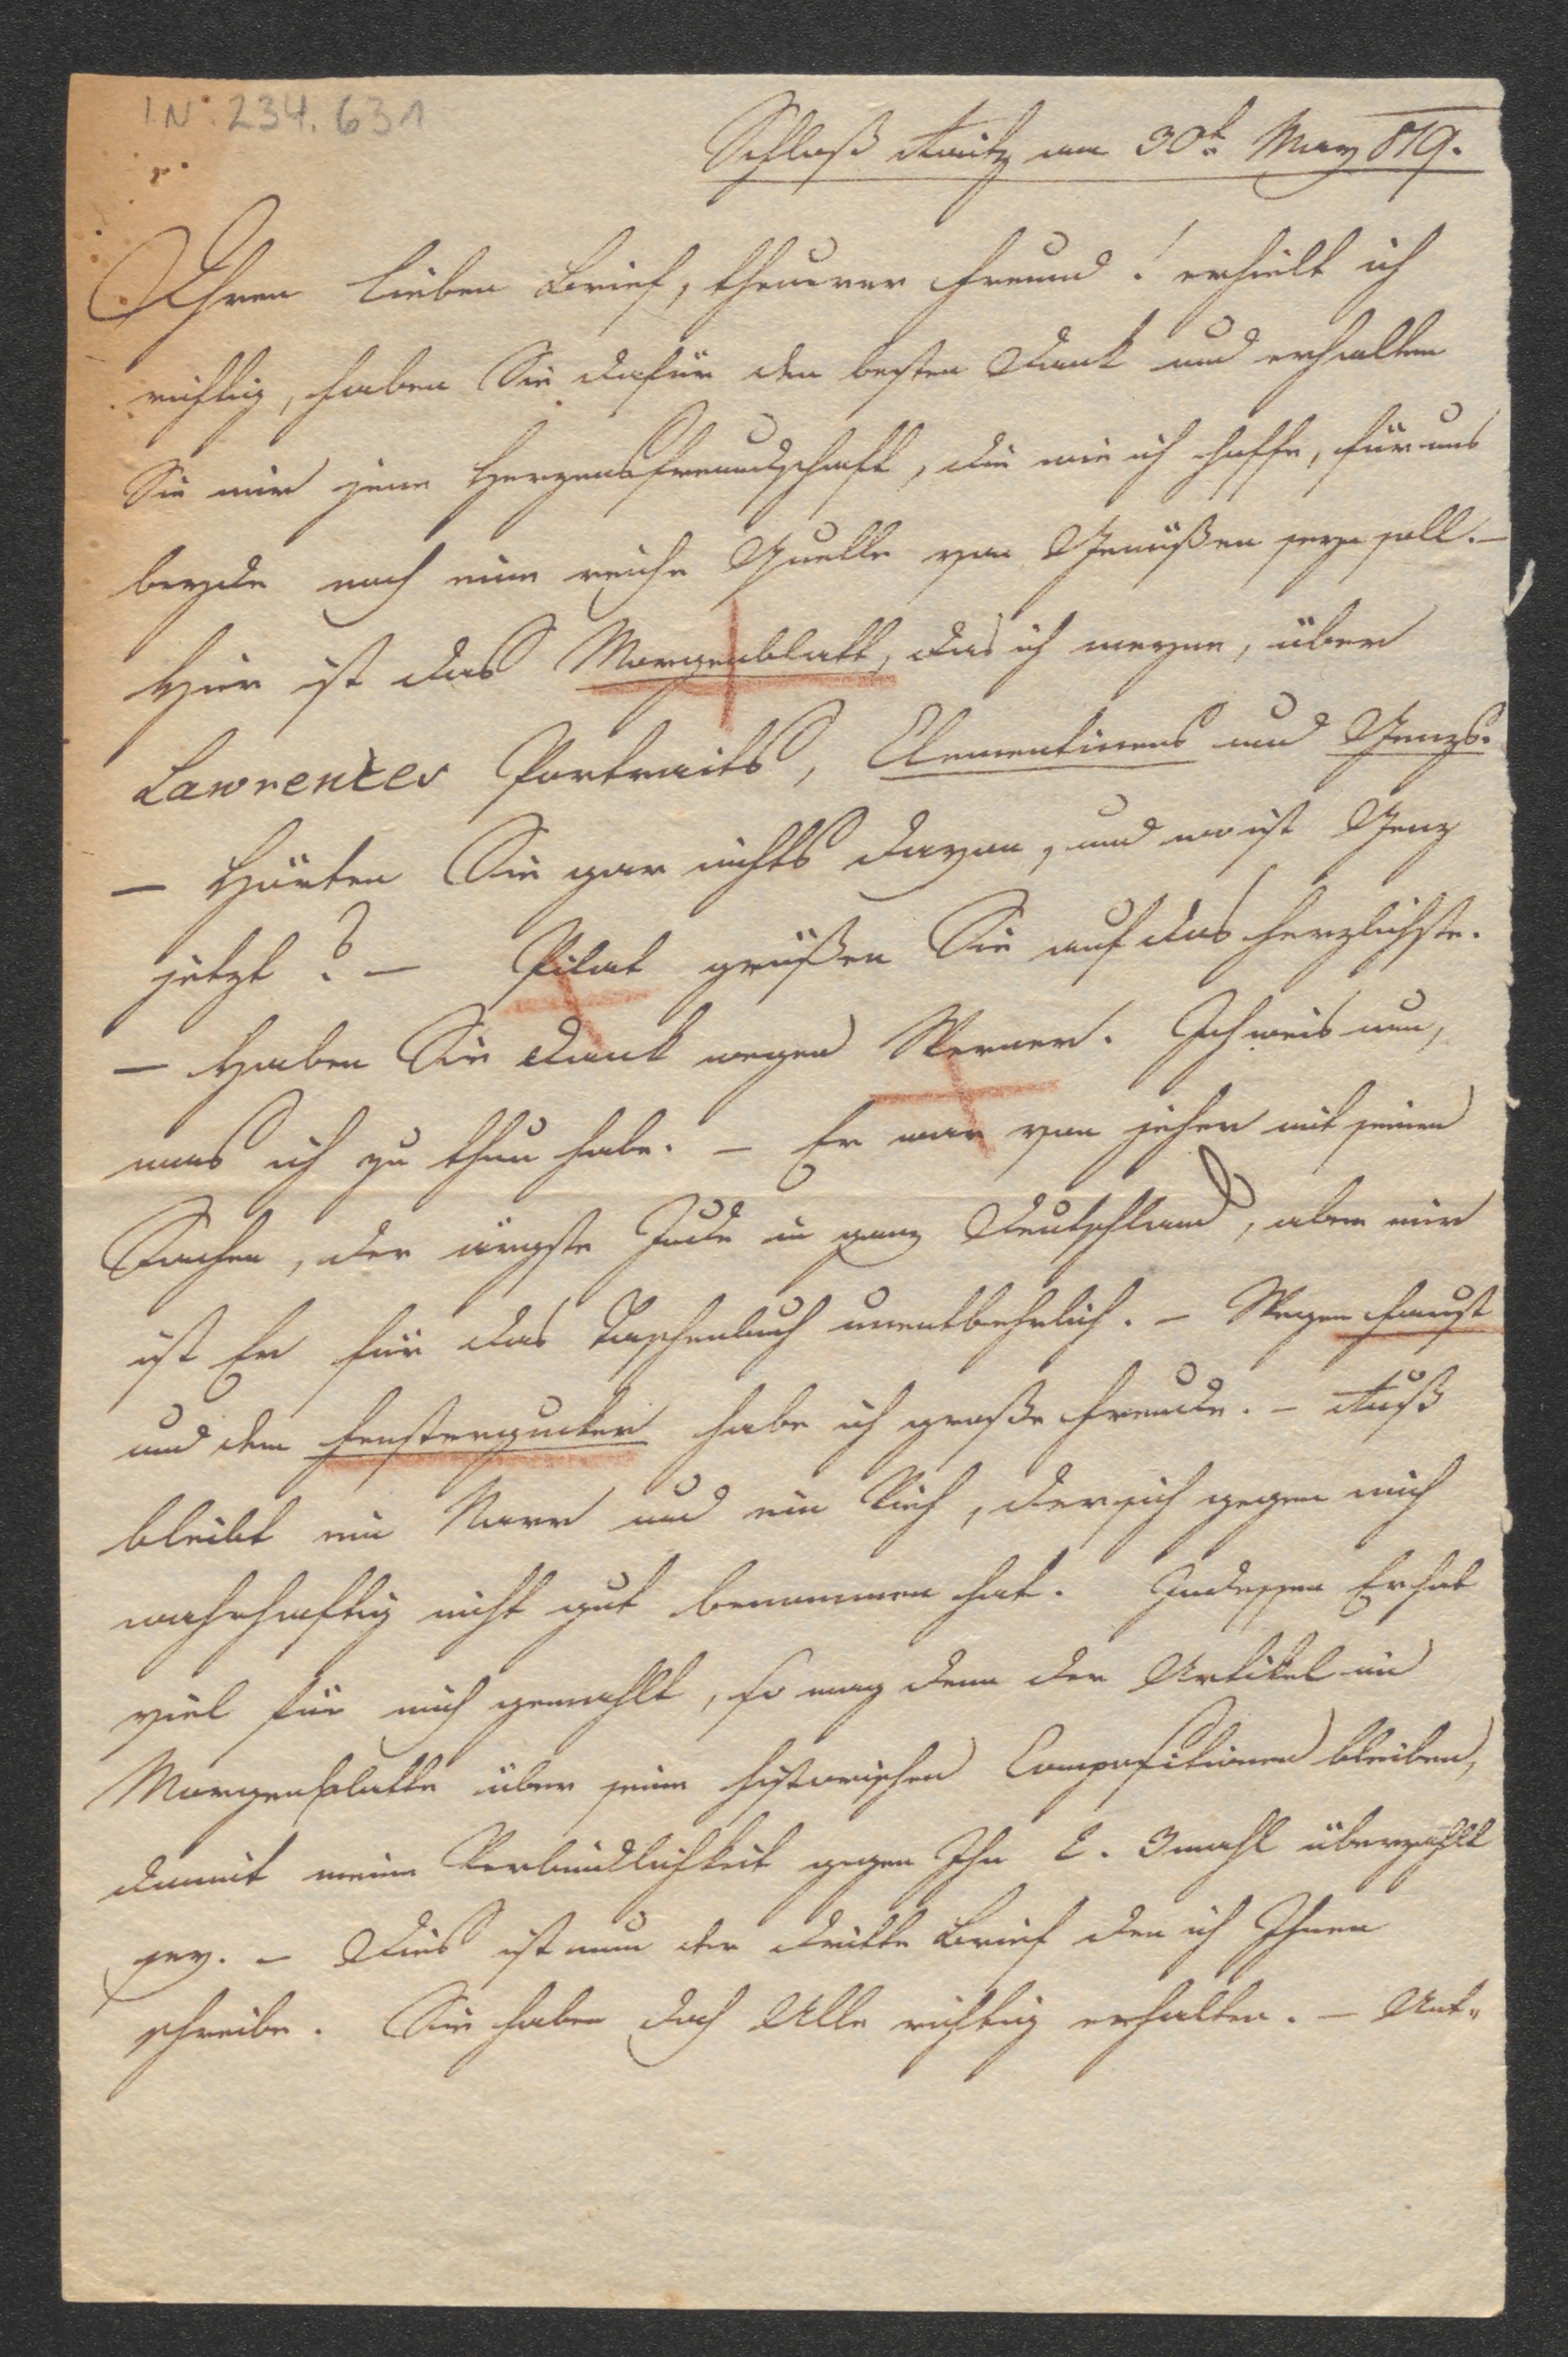 I N: 234.631
Schloß Raitz am 30t May 819.
Ihren lieben Brief, theurer Freund! erhielt ich
richtig, haben Sie dafür den besten Dank und erhalten
Sie mir jene Herzensfreundschaft, die wie ich hoffe, für uns
beyde noch eine reiche Quelle von Genüßen seyn soll. –
Hier ist das Morgenblatt, das ich meyne, über
Lawrences Portraits, Clementinens und Genzs.
– Hörten Sie gar nichts davon, und wo ist Genz
jetzt? – Pilat grüßen Sie auf das herzlichste.
– Haben Sie Dank wegen Werner. Ich weis nun,
was ich zu thun habe. – Er war von jeher mit seinen
Sachen, der ärgste Jude in ganz Deutschland, aber mir
ist Er für das Taschenbuch unentbehrlich. – Wegen Faust
und dem Fenstergucker habe ich große Freude. – Ruß
bleibt ein Narr und ein Vieh, der sich gegen mich
wahrhaftig nicht gut benommen hat. Indessen Er hat
viel für mich gemahlt, so mag denn der Artikel im
Morgenblatte über seine historischen Compositionen bleiben,
damit meine Verbindlichkeit gegen Ihn 2. 3mahl überzahlt
sey. – Dies ist nun der dritte Brief den ich Ihnen
schreibe. Sie haben doch Alle richtig erhalten. – Ant„